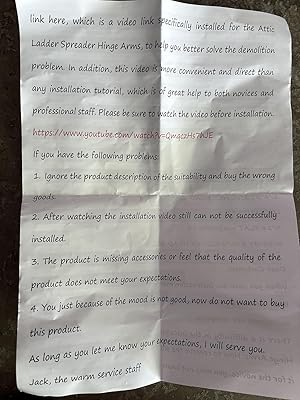 link here, which is a video link specifically installed for the Attic
Ladder Spreader Hinge Arms, to help you better solve the demolition
problem. In addition, this video is more convenient and direct than
any installation tutorial, which is of great help to both novices and
professional staff. Please be sure to watch the video before installation.
https://www.youtube.com/watch?v=QmqczHs7hJE
If you have the following problems:
1. Ignore the product description of the suitability and buy the wrong
goods.
2. After watching the installation video still can not be successfully
installed.
3. The product is missing accessories or feel that the quality of the
product does not meet your expectations.
4. You just because of the mood is not good, now do not want to buy
this product.
As long as you let me know your expectations, I will serve you.
Jack, the warm service staff